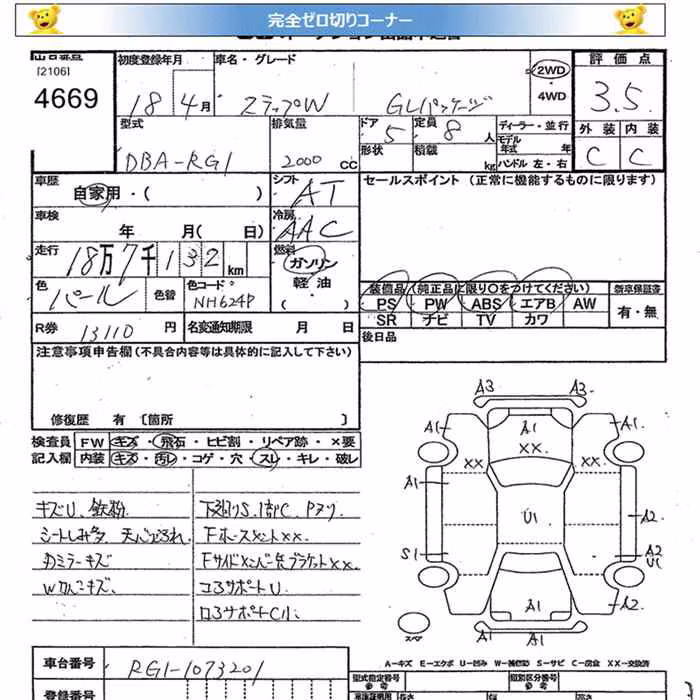 完全ゼロ切りコーナー
[2106]
4669
初度登録年月
18年4月
車名・グレード
ステップW GLパッケージ
2WD
4WD
評価点
3.5
型式
DBA-RG1
排気量
2000 CC
ドア 5
形状
定員 8 人
積載 kg
ディーラー・並行
モデル年式 年
ハンドル 左・右
外装 内装
C C
車歴
自家用・( )
シフト
AT
セールスポイント (正常に機能するものに限ります)
車検
年 月( 日)
冷房
AAC
走行
18万7千132km
燃料
ガソリン
軽油
( )
色
パール
色替
色コードNo.
NH624P
装備品(純正品に限り○をつけてください)
新車保証書
PS PW ABS エアB AW
有・無
SR ナビ TV カワ
R券 13110 円
名変通知期限 月 日
後日品
注意事項申告欄(不具合内容等は具体的に記入して下さい)
修復歴 有 [箇所 ]
検査員
記入欄
FW キズ・飛石・ヒビ割・リペア跡・×要
内装 キズ・汚レ・コゲ・穴・スレ・キレ・破レ
キズU、鉄粉
下廻りS、1部C、Pヌリ
Dミラーキズ
コアサポートU
A3 A3
A1 A1 A1
XX XX XX
A1
U1
A2
S1
A2
U1
A2
A1
A1 A1
スペア
A−キズ E−エクボ U−凹み W−補修跡 S−サビ C−腐食 XX−交換済
車台番号
RG1-1073201
型式指定番号
参考
類別区分番号
参考
登録番号